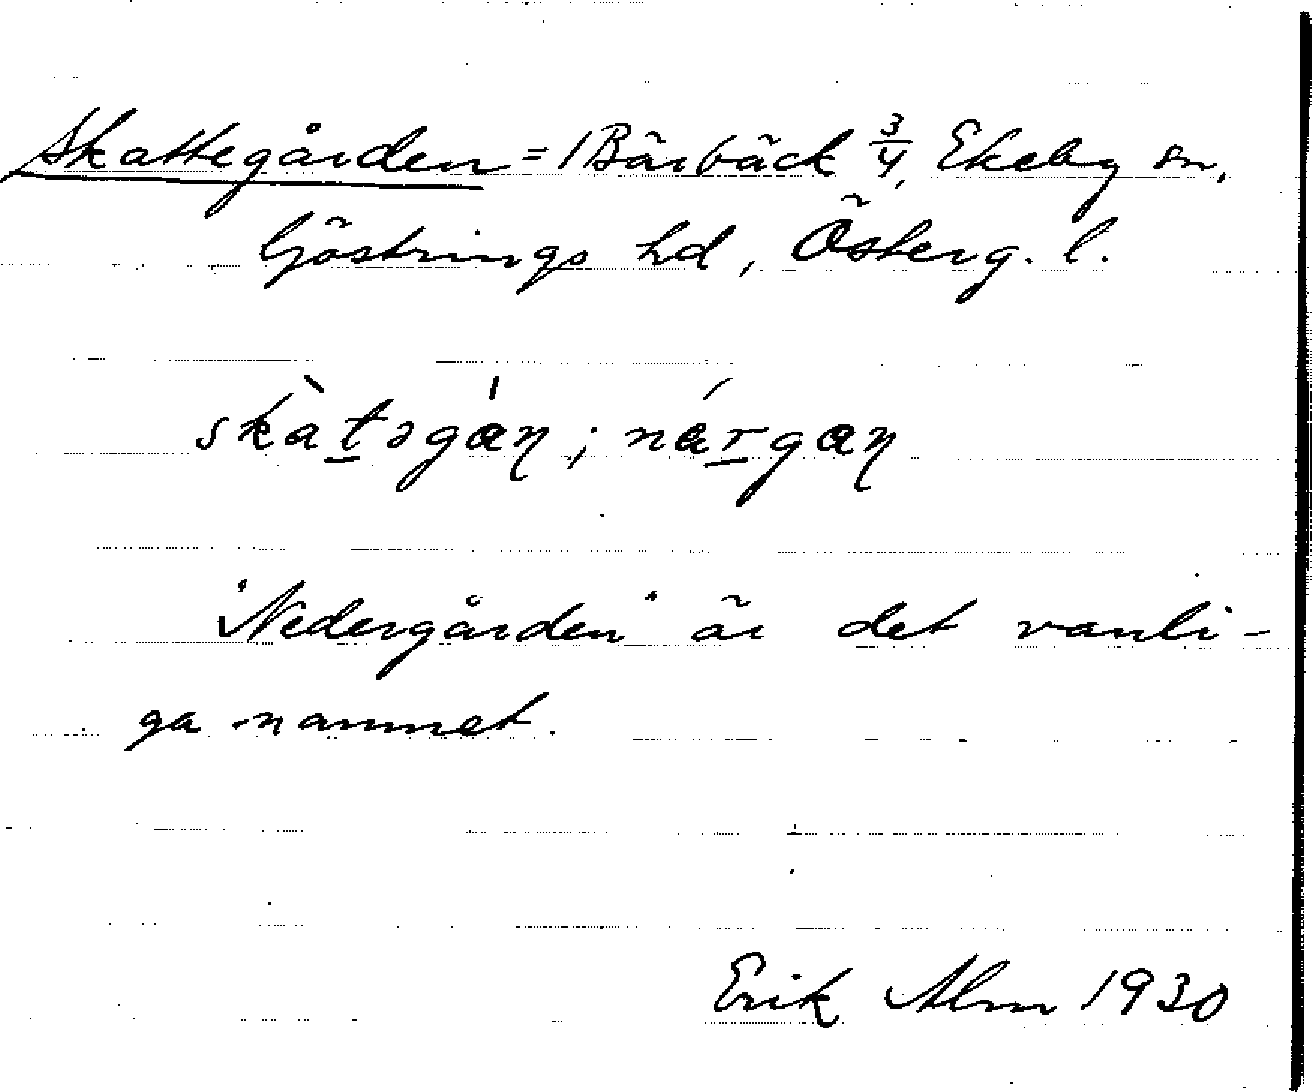 Skattegården = Bärbäck 3/4, Ekeby sn,
Göstrings hd, Österg. l.
skàt̲əgáɳ; nár̲gaɳ
"Nedergården" är det vanli-
ga namnet.
Erik Alm 1930